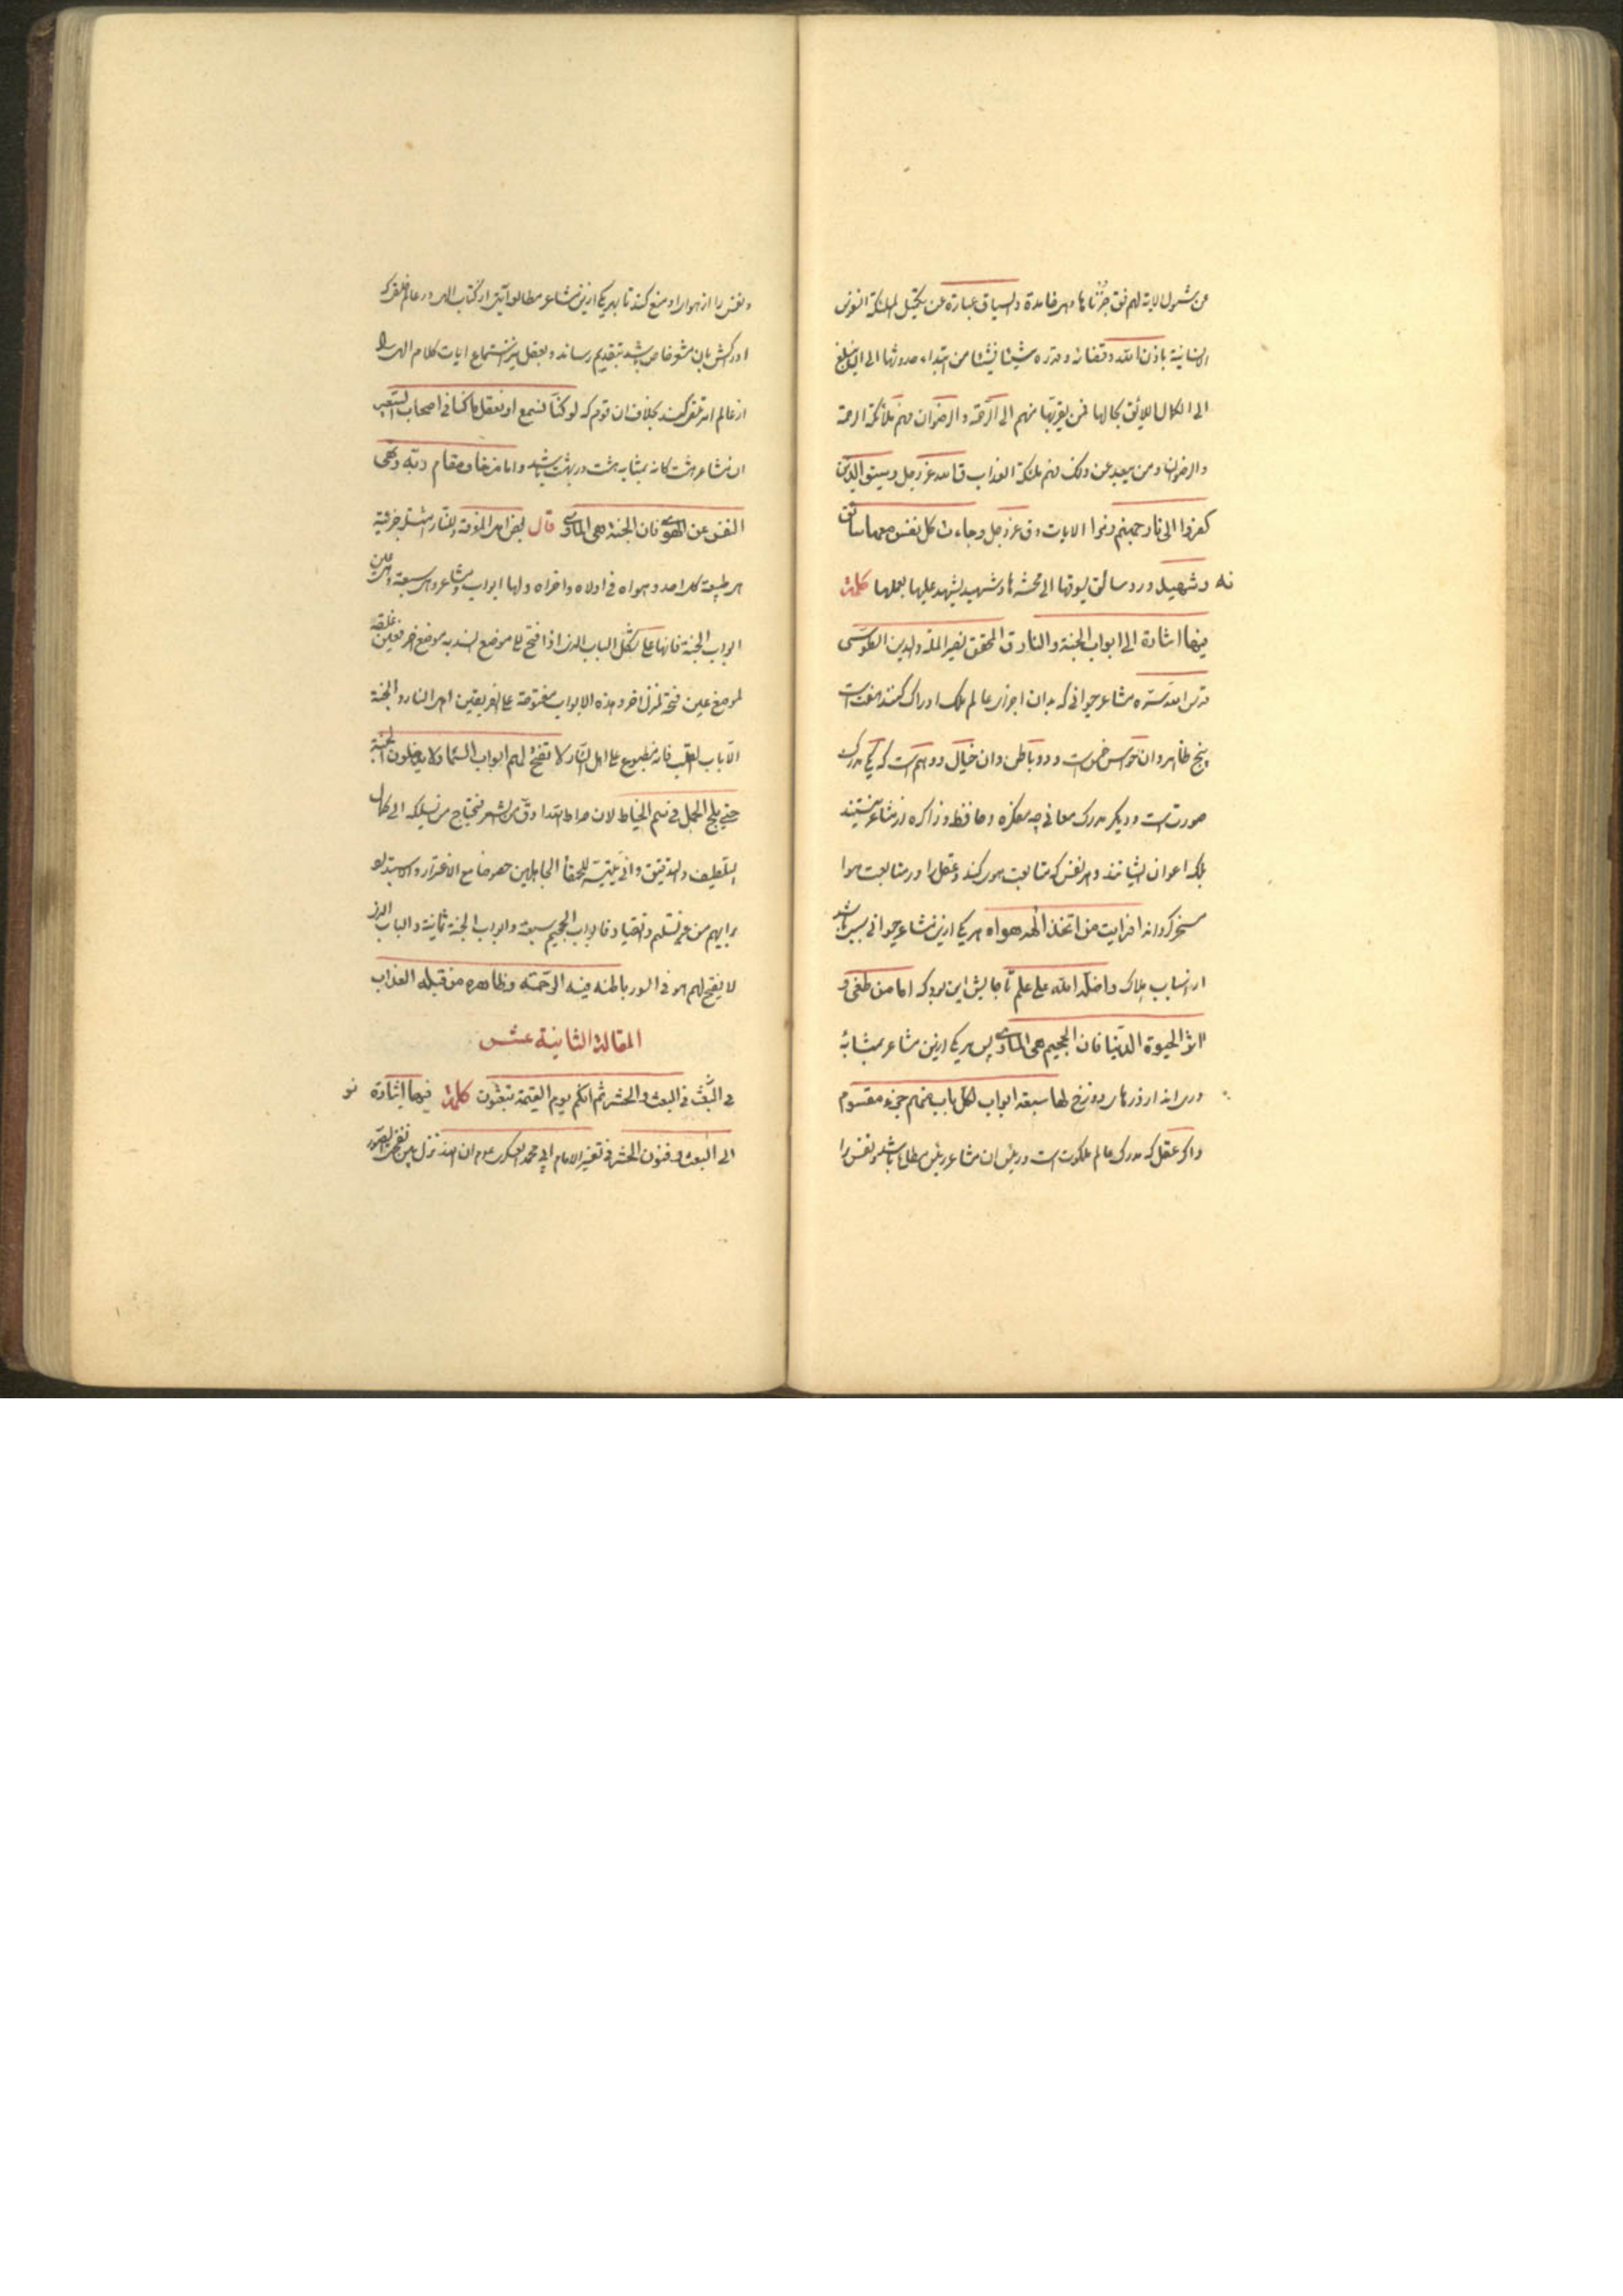 من شمول الاية لهم فقد جزناها وهي خامدة والسياق عبارة عن تحييل الملئكة النفوس
الانسانية باذن الله وقضائه وقدره شيئا فشيئا من ابتداء حدوثها الى ان يبلغ
الى الكمال اللايق بحالها فمن يقربها منهم الى الرحمة والرضوان فهم ملائكة الرحمة
والرضوان ومن يبعد عن ذلك فهم ملئكة العذاب قال الله عز وجل وسيق الذين
كفروا الى نار جهنم زمرا الايات وق عز وجل وجاءت كل نفس معها سائق
وشهيد ورد سائق يسوقها الى محشرها وشهيد يشهد عليها بعملها كلمة نه
فيها اشارة الى ابواب الجنة والنار ق المحقق نصير الملة والدين الطوسى
قدس الله سره مشاعر حيوانى كه بدان اجزاى عالم ملك ادراك كنند هفت است
پنج ظاهر و ان حواس خمس است و دو باطن و ان خيال و وهم است كه يكى مدرك
صورت است و ديكر مدرك معانى چه مفكره و حافظه و ذاكره از مشاعر نيستند
بلكه اعوان ايشانند و هر نفس كه متابعت هوى كند و عقل را در متابعت هوا
مسخر كرداند افرايت من اتخذ الهه هواه هر يكى ازين مشاعر حيوانى سببى باشد
از اسباب هلاك واضله الله على علم تا حالش اين بود كه اما من طغى و
اثر الحيوة الدنيا فان الجحيم هى الماوى پس هر يكى ازين مشاعر بمثابه
درى اند از درهاى دوزخ لها سبعة ابواب لكل باب منهم جزء مقسوم
و اكر عقل كه مدرك عالم ملكوت است و رئيس ان مشاعر رئيس مطاع باشد و نفس را
و نفس را از هواى او منع كند تا بهر يكى ازين مشاعر مطالعه آيتى از كتاب الهى در عالم خلق كه
ادراكش بان مشعر خاص باشد بتقديم رساند و بعقل نيز استماع ايات كلام الهى را
از عالم امر تلقى كند بخلاف ان قوم كه لو كنا نسمع او نعقل ما كنا فى اصحاب السعير
ان مشاعر هشت كانه بمثابه هشت در بهشت باشد و اما من خاف مقام ربه ونهى
النفس عن الهوى فان الجنة هى الماوى قال بعض اهل المعرفة
هى طبيعة كل احد و هواه فى اولاه و اخراه و لها ابواب و مشاعر و هى سبعة و هى عين
ابواب الجنة فانها على شكل الباب الذى اذا فتح على موضع انسد به موضع اخر فعين غلقه
لموضع عين فتحه لمنزل اخر و هذه الابواب مفتوحة على الفريقين اهل النار والجنة
الا باب القلب فانه مطبوع على اهل النار لا تفتح لهم ابواب السماء ولا يدخلون الجنة
حتى يلج الجمل فى سم الخياط لان صراط الله ادق من الشعر فيحتاج من يسلكه الى كمال
التلطيف والتدقيق و انى يتيسر للحمقاء الجاهلين خصوصا مع الاغترار والاستبداد
برايهم من غير تسليم و انقياد فابواب الجحيم سبعة و ابواب الجنة ثمانية و الباب الذى
لا يفتح لهم هو فى السور باطنه فيه الرحمة وظاهره من قبله العذاب
المقالة الثانية عشر
فى البث فى البعث والحشر ثم انكم يوم القيمة تبعثون كلمة فيها اشارة نو
الى البعث و فنون الحشر فى تفسير الامام ابى محمد العسكرى ان الله ينزل بين نفختى الصور